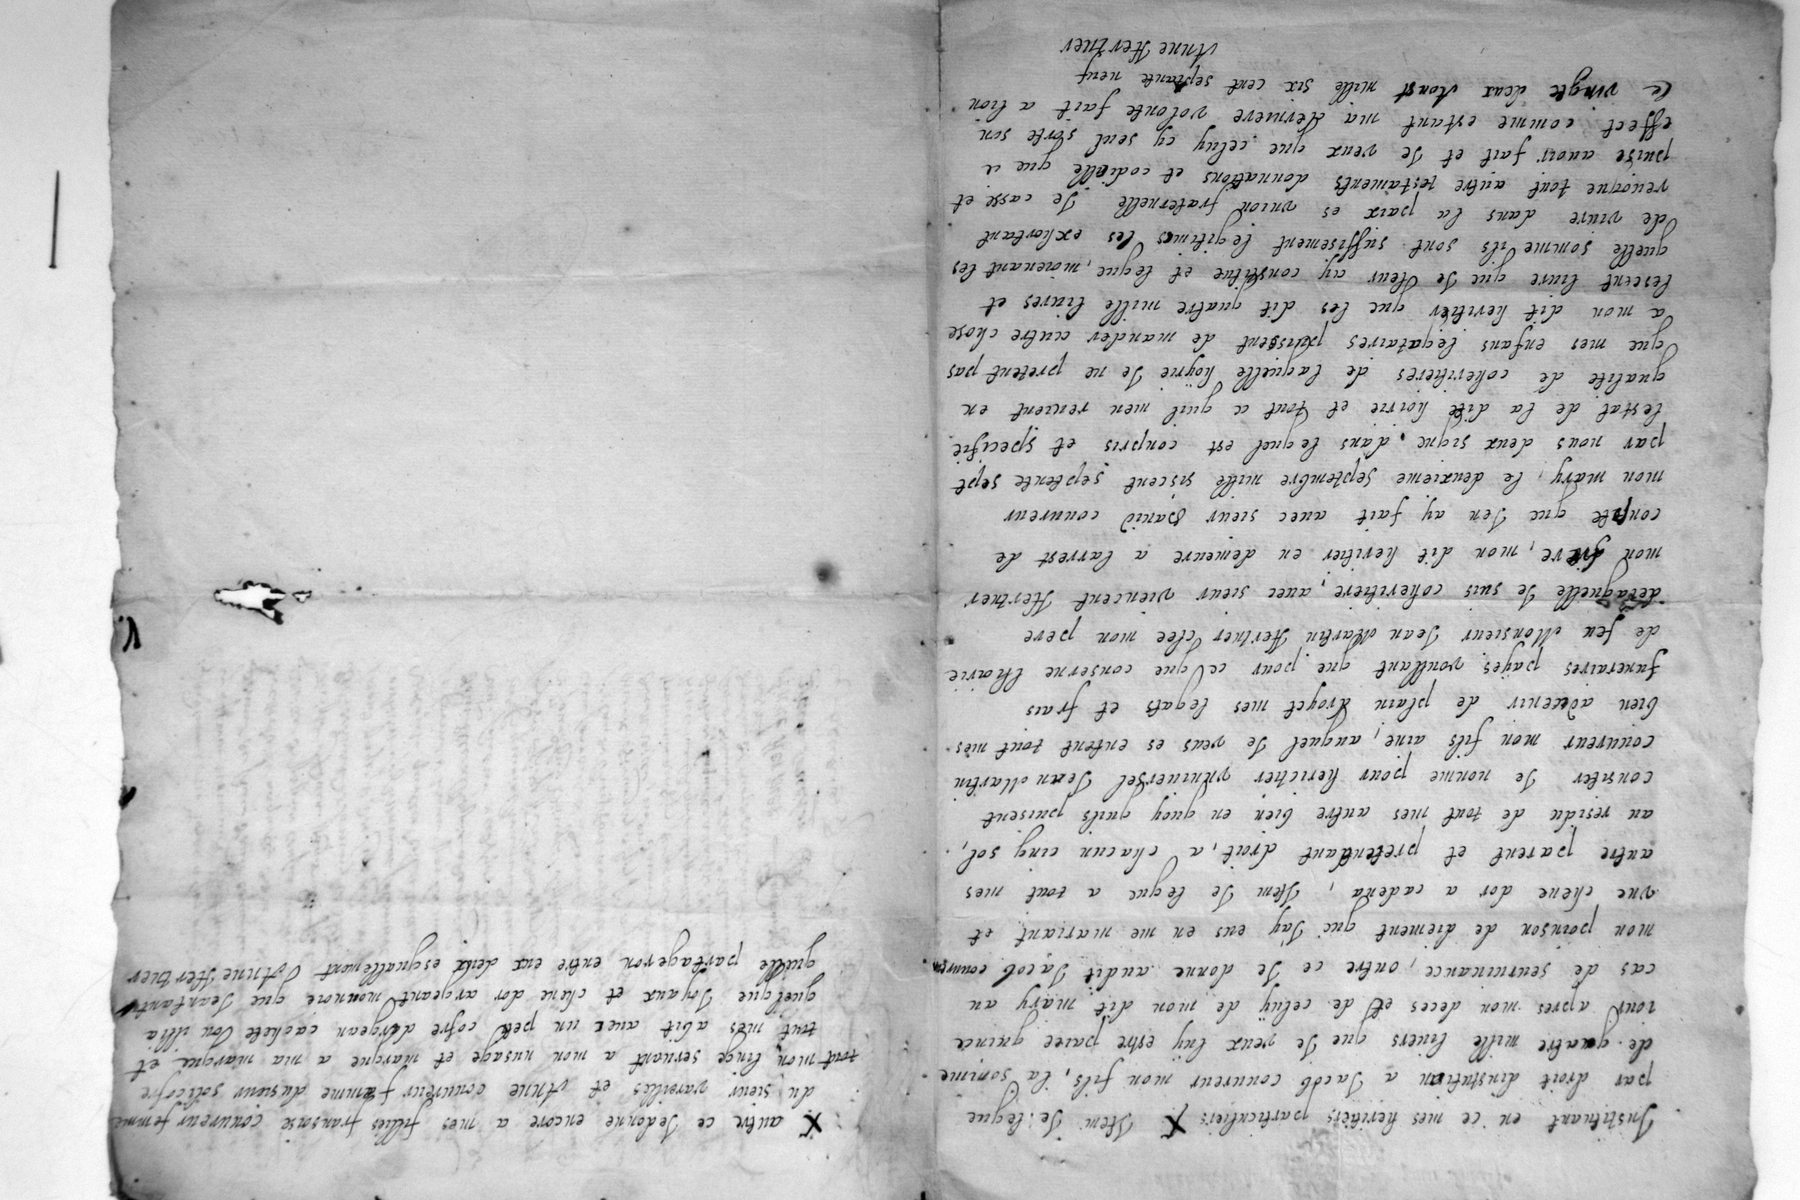 Instituant en ce mes heritiers particuliers X Item Je legue
par droit dinstitution a Jacob couureur mon fils, la somme
de quatre mille liures que Je veux luÿ estre paiee quince
iours apres mon deces et de celuÿ de mon dit marÿ au
cas de seuruiuance, outre ce Je donne audit Jacob couureur
mon poinson de diement que Jay eus en me mariant et
vne chene dor a cadena, Item Je legue a tout mes
autre parent et pretendant droit, a chacun cinq sol,
au residu de tout mes autre bien en quoy quils puisent
consiter Je nomme pour heritier vniuersel Jean Martin
couureur mon fils aine, auquel Je veus es entent tout mes
bien aduenir de plain droyet mes legats et frais
funeraires payés voullant que pour ce que conserne lhoirie
de feu Monsieur Jean Martin Hertner mon pere
delaquelle Je suis coheritiere, auec sieur viencent Hertner
mon frere, mon dit heritier en demeure a larrest de
conpte que Jen ay fait auec sieur Dauid couureur
mon mary, le deuxieme septembre mille siscent septente sept
par nous deux signe, dans lequel est conpris et specifié
lestat de la dite hoirie et tout a quil men reuient en
qualite de coheritieres de laquelle hoÿrie Je ne pretent pas
que mes enfans legataires puissent de mander autre chose
a mon dit heritier que les dit quatre mille liures et
lescent liure que Je leur ay constitue et legue, moienant les
quelle somme ils sont suffisement legitimes les exhortant
de viure dans la paix es vnion fraternelle Je casse et
reuoque tout autre testaments donnations et codicille que ie
puise auoir fait et Je veux que celuy cy seul sorte son
effect comme estant ma derniere volonte fait a lion
le vingte deux Aoust mille six cent septante neuf
Anne Hertner
X autre ce Jedonne encore a mes fillies fransoise couureur femme
du sieur vareilles et Anne couureur famme dusieur solicofre
tout mon linge seruant a mon vusage et marque a ma marque et
tout mes abit auec un petit cofre dargean cachete Ou illia
quelque Joyaux et chene dor argeant monnoie que Jeantant
quelle partageron entre eux deux esguallemant Anne Hertner